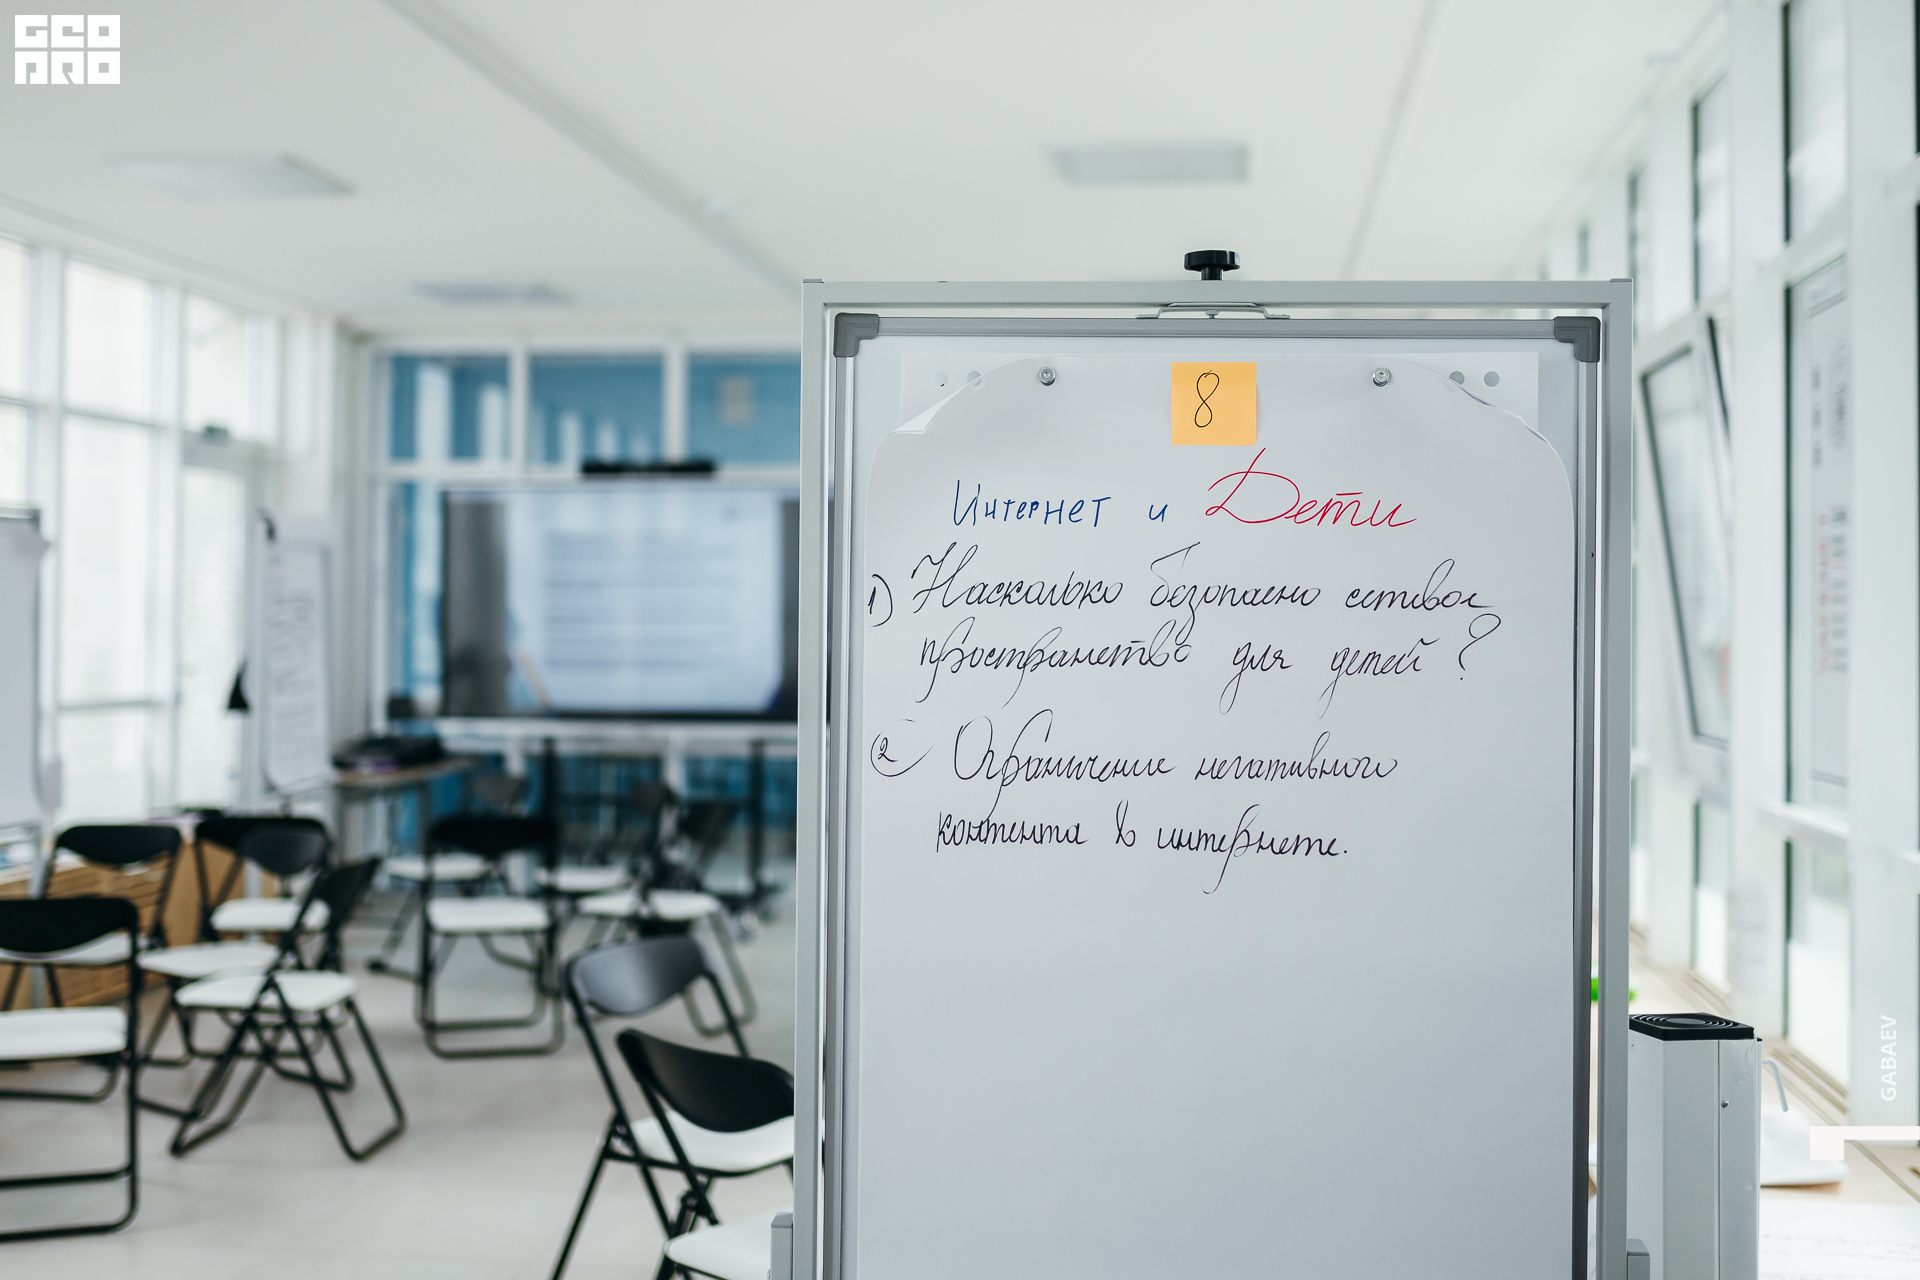 GEO
PRO
8
Интернет и Дети
1) Насколько безопасно сетевое
пространство для детей?
2 Ограничение негативного
контента в интернете.
GABAEV